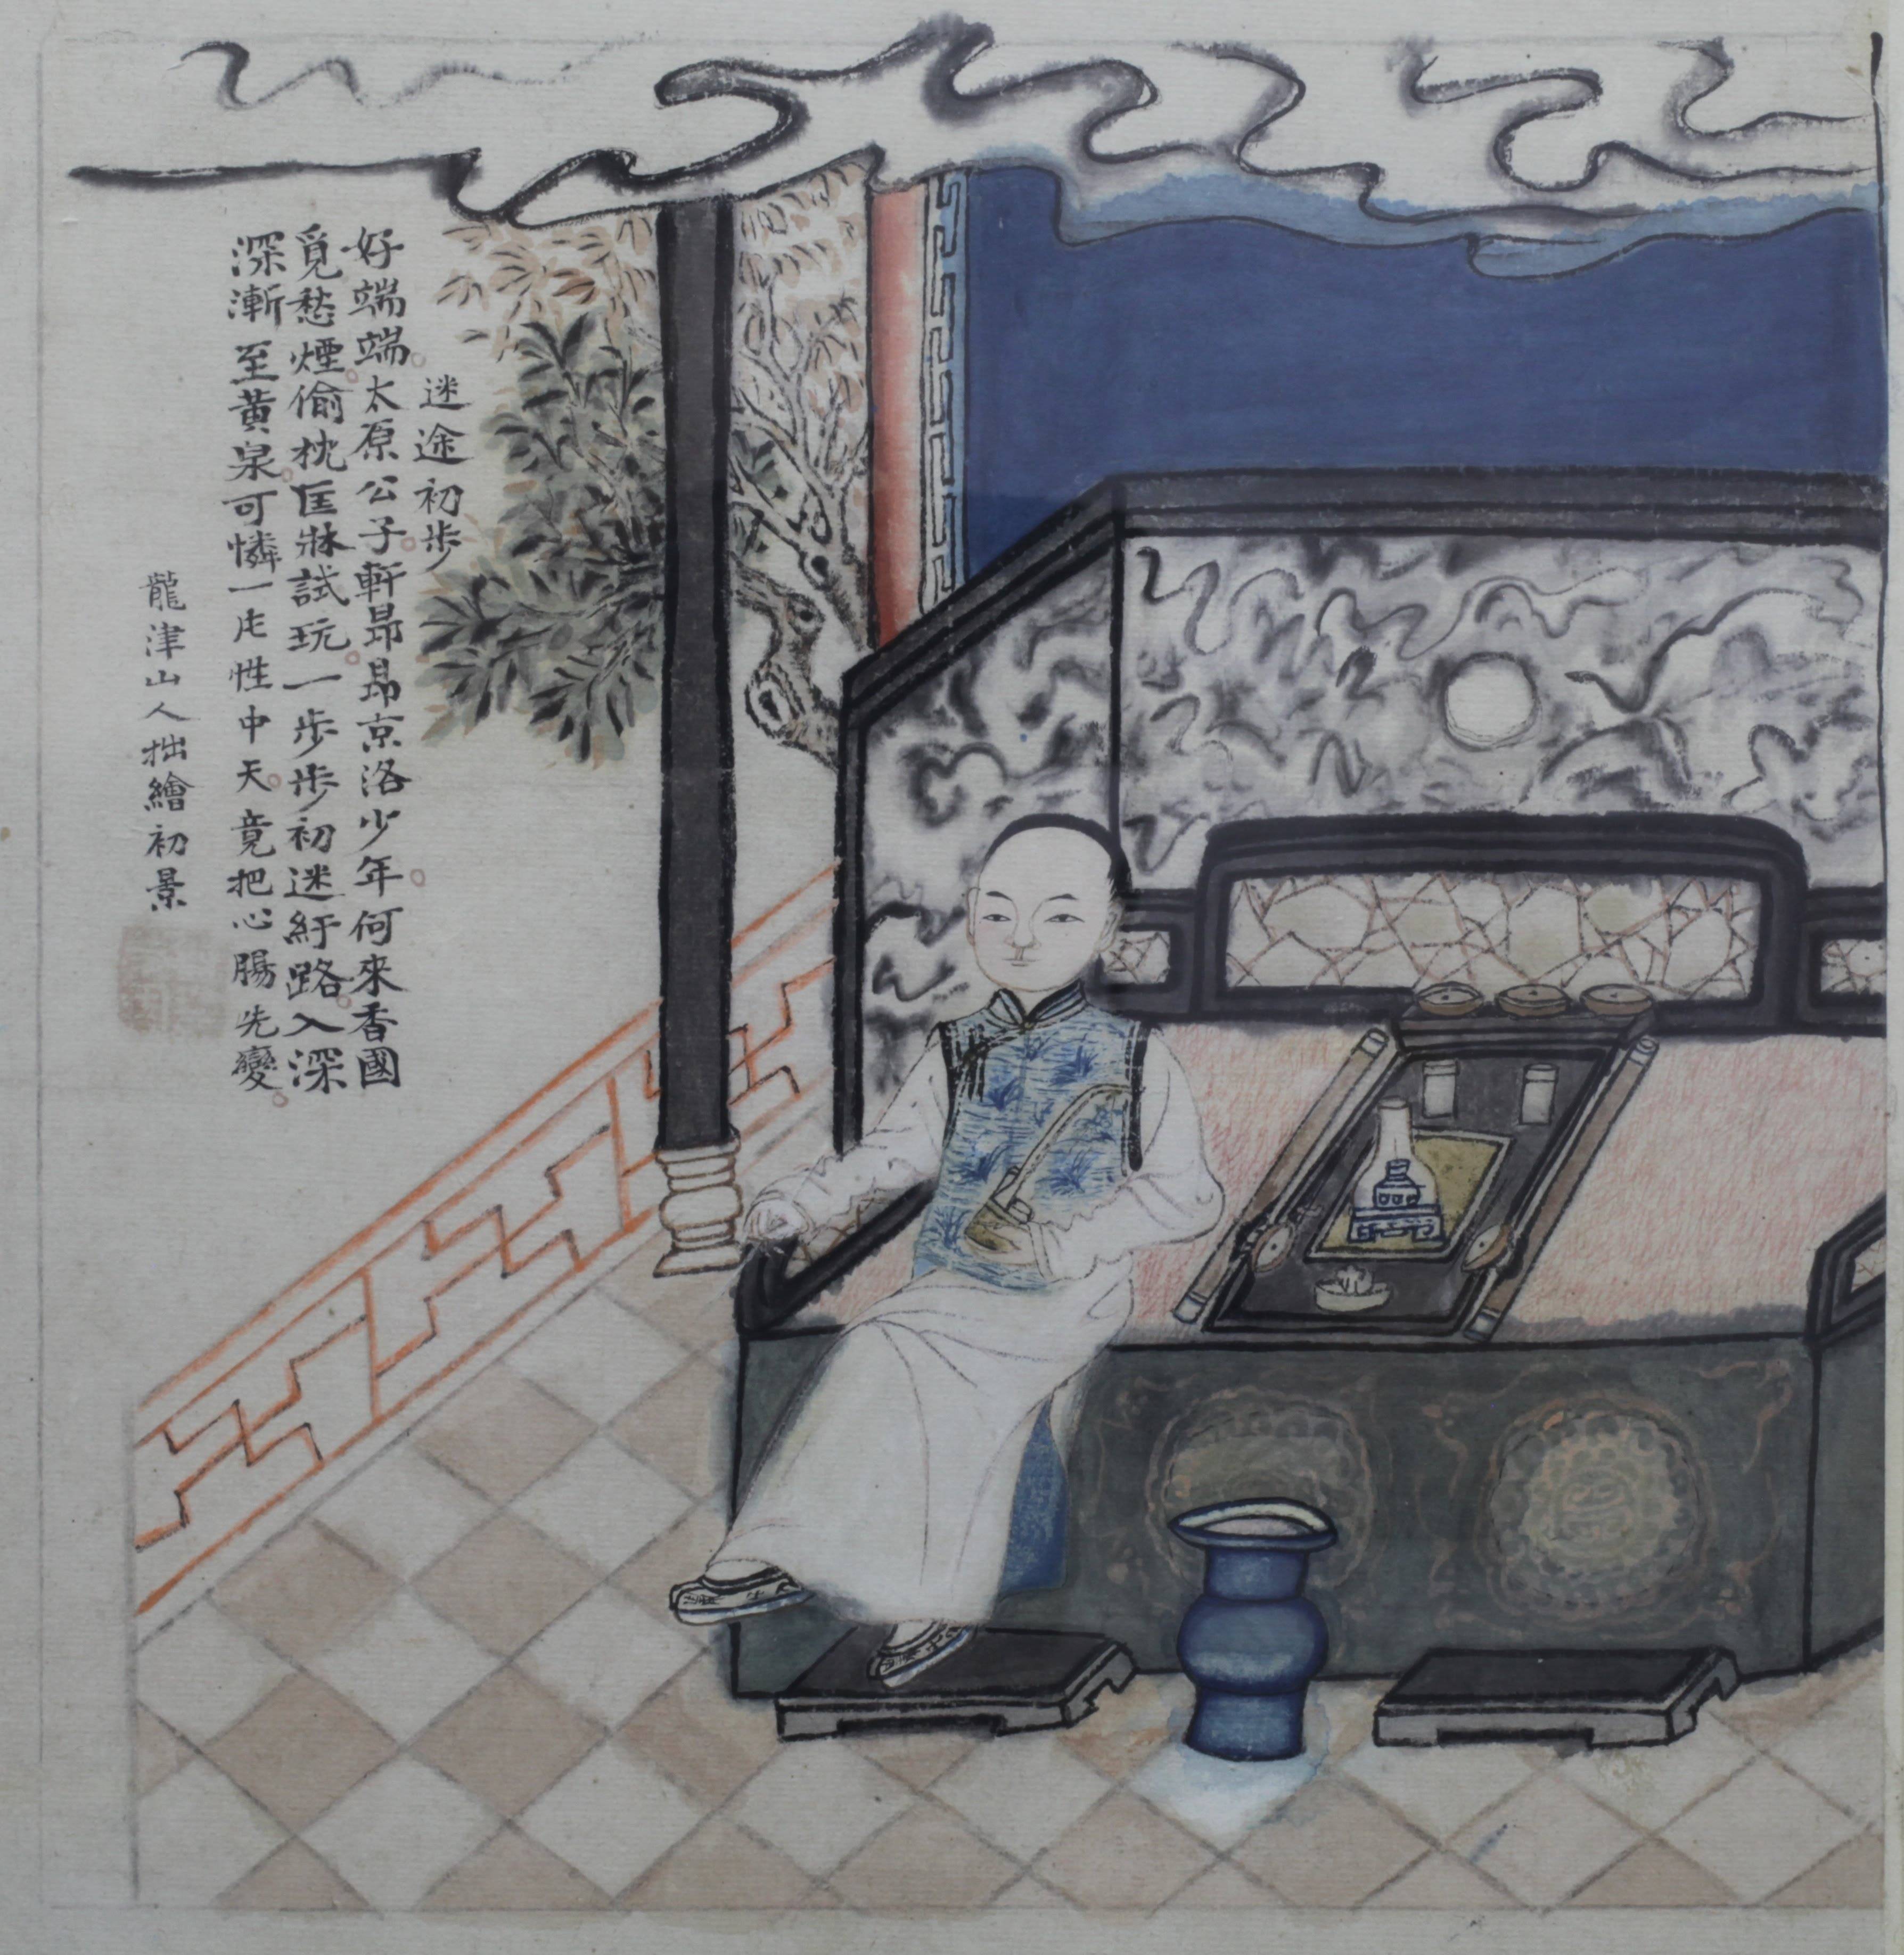 迷途初步
好端端太原公子軒昻昻京洛少年何來香國
覓愁煙偷枕匡牀試玩一步步初迷紆路入深
深漸至黃泉可憐一片性中天竟把心腸先變
龍津山人拙繪初景